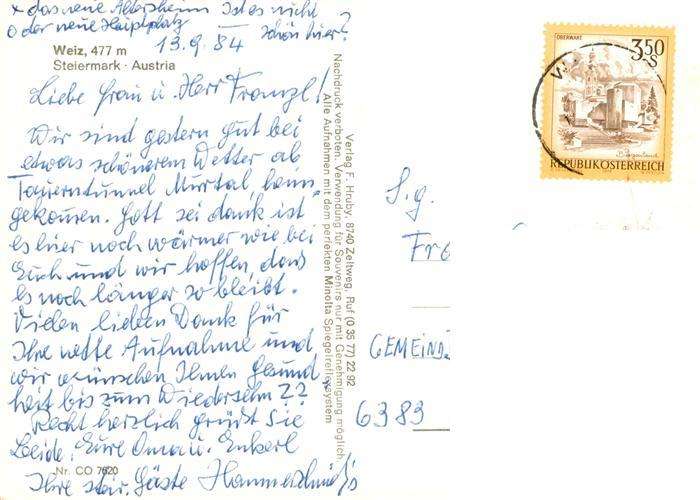 x das neue Altersheim Ist es nicht
o der neue Hauptplatz — schön hier?
13.9.84
Weiz, 477 m
Steiermark · Austria
Liebe Frau u. Herr Franzl!
Wir sind gestern gut bei
etwas schönerem Wetter ab
Tauerntunnel Murtal, heim-
gekommen. Gott sei dank ist
es hier noch wärmer wie bei
Euch und wir hoffen, dass
es noch länger so bleibt.
Vielen lieben Dank für
Ihre nette Aufnahme und
wir wünschen Ihnen Gesund
heit bis zum Wiedersehn
Recht herzlich grüßt Sie
Beide, Eure Oma u. Enkerl
Ihre steir. Gäste Hammerschmid's
Nr. CO 7620
Verlag F. Hruby, 8740 Zeltweg, Ruf (0 35 77) 22 92
Nachdruck verboten. Verwendung für Souvenirs nur mit Genehmigung möglich.
Alle Aufnahmen mit dem perfekten Minolta Spiegelreflexsystem
OBERWART
3.50
S
Burgenland
REPUBLIK ÖSTERREICH
S.g.
GEMEIND
6383